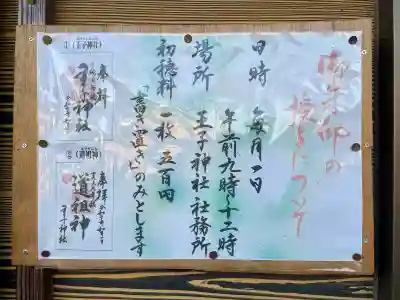 御朱印の
授与について
日時　毎月一日
午前九時〜十二時
場所　王子神社 社務所
初穂料　一枚 五百円
「書き置き」のみとします
①(王子神社)
奉拝
王子神社
②(道祖神)
奉拝
道祖神
王子神社